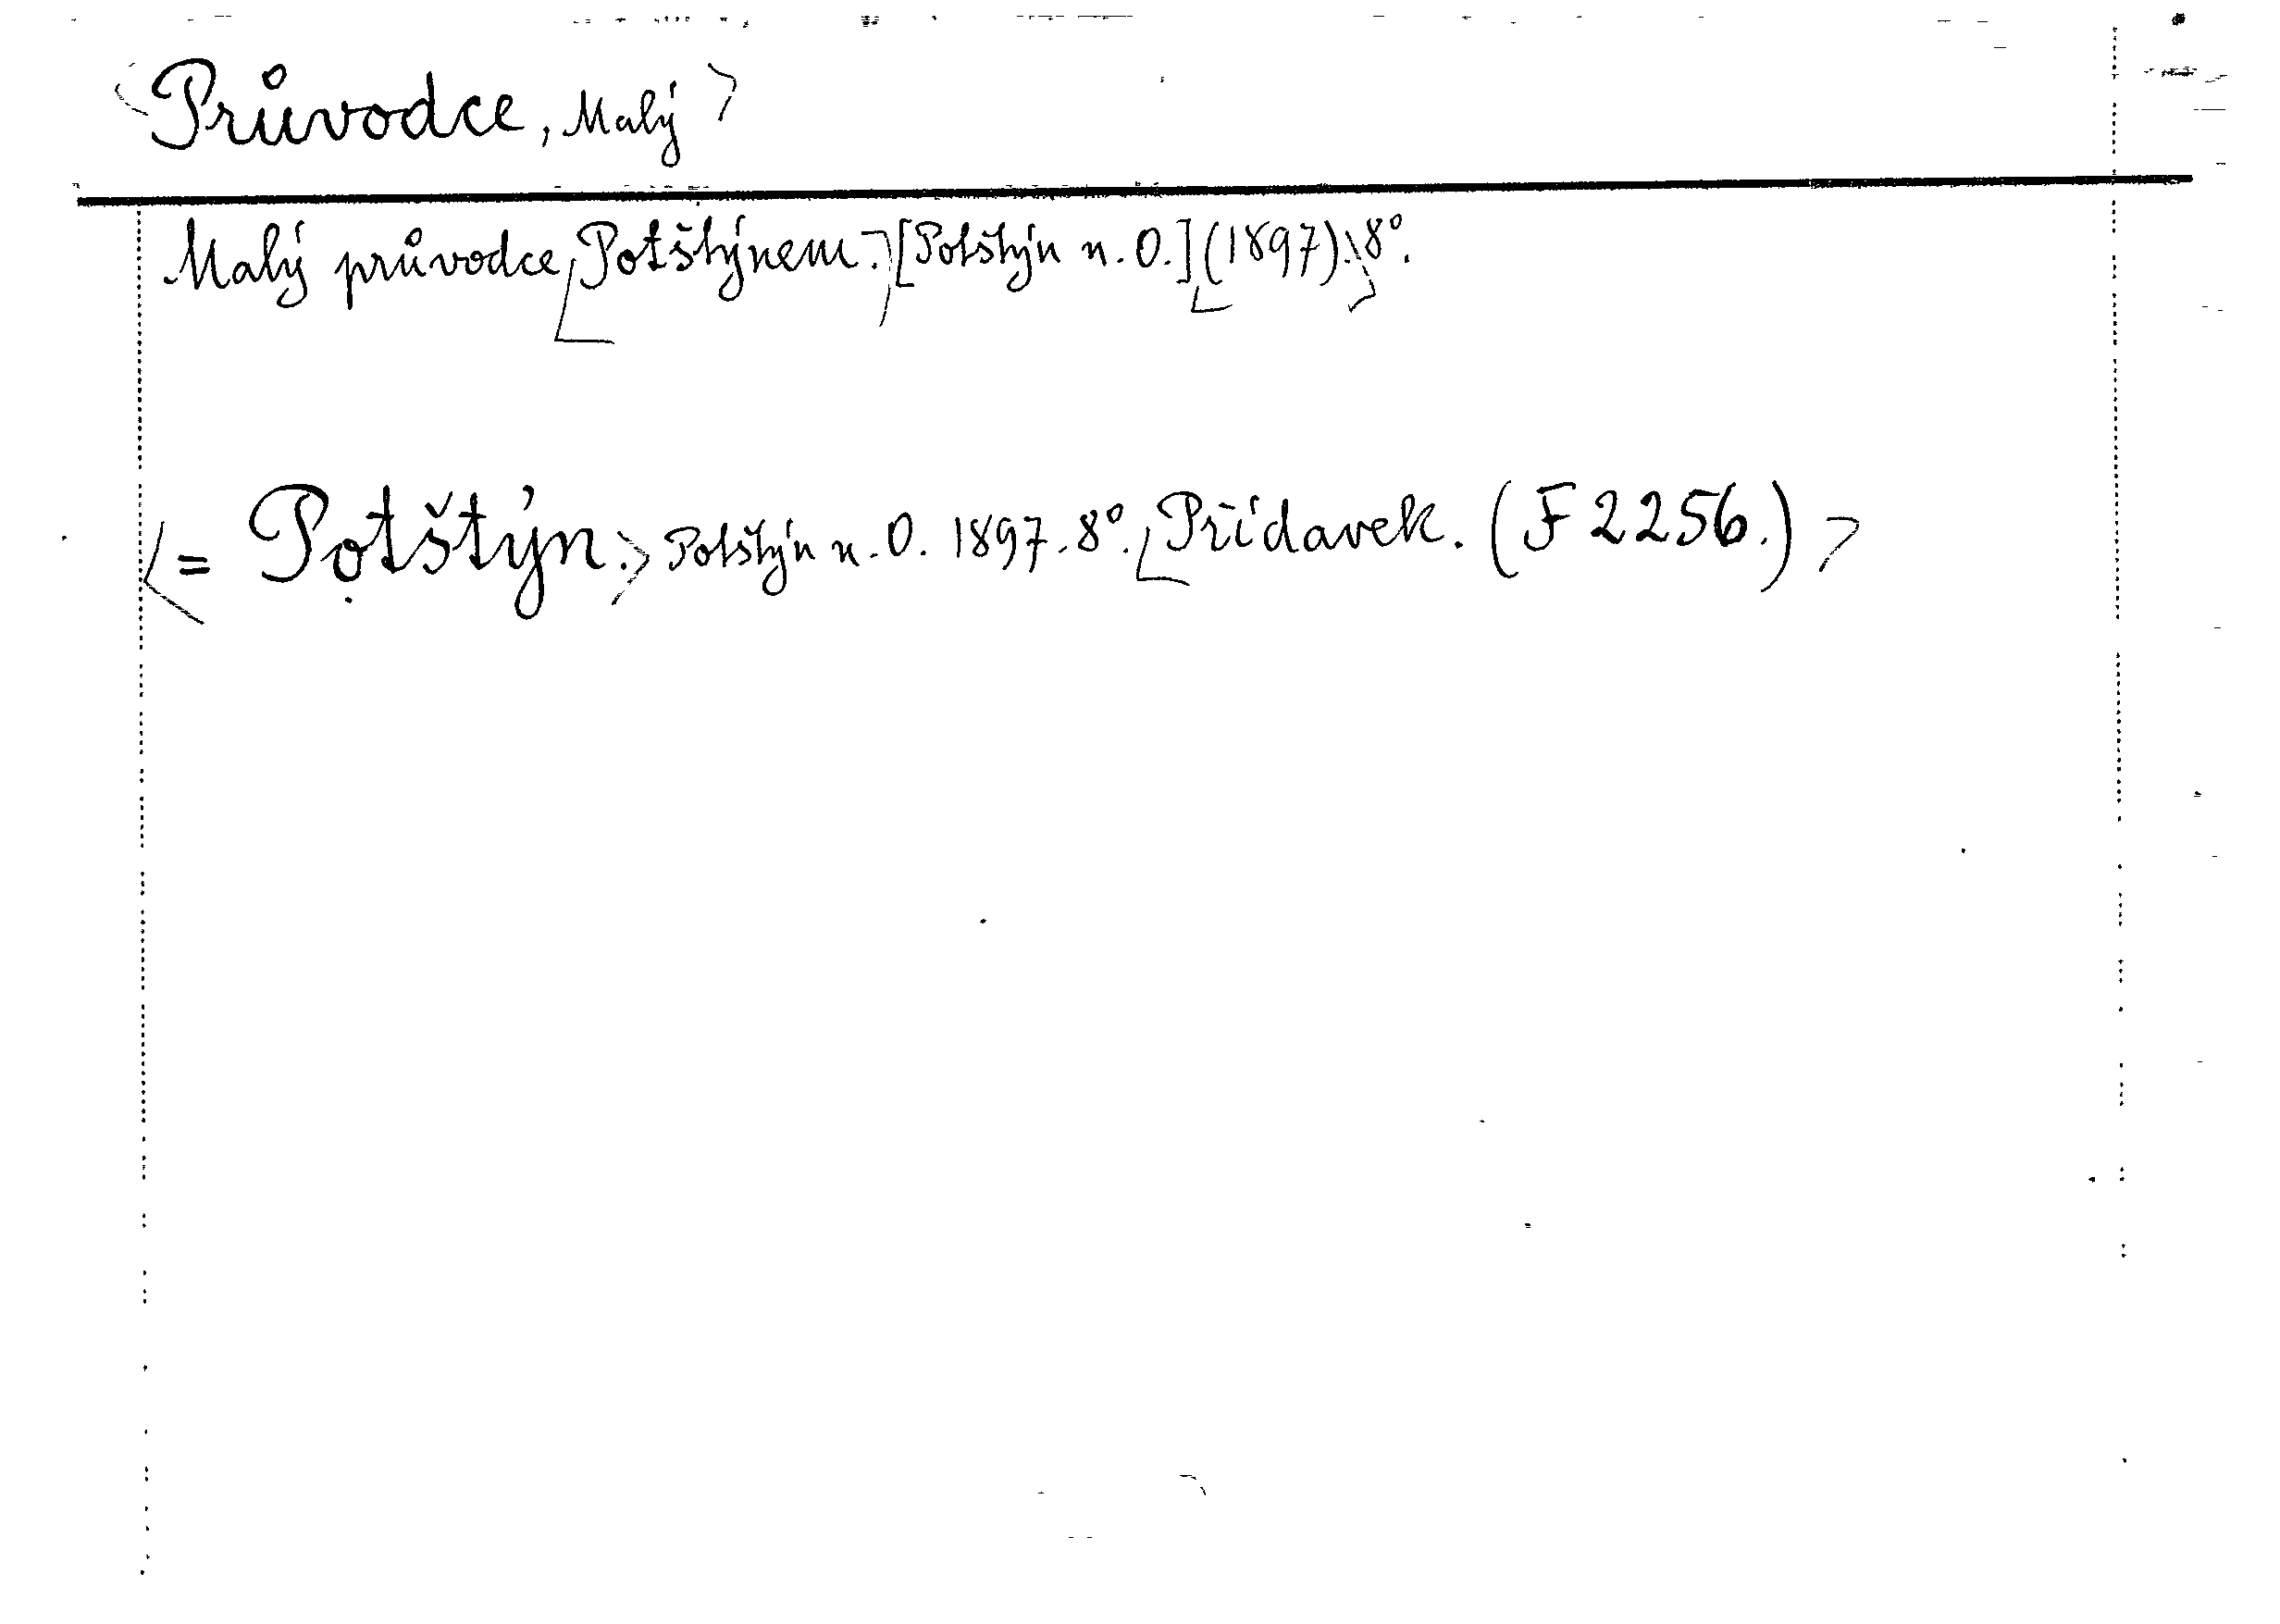 <Průvodce, Malý>
Malý průvodce Potštýnem. [Potštýn n. O.] (1897). 8°.
<= Potštýn.> Potštýn n. O. 1897. 8°. <Přídavek. (F 2256.)>